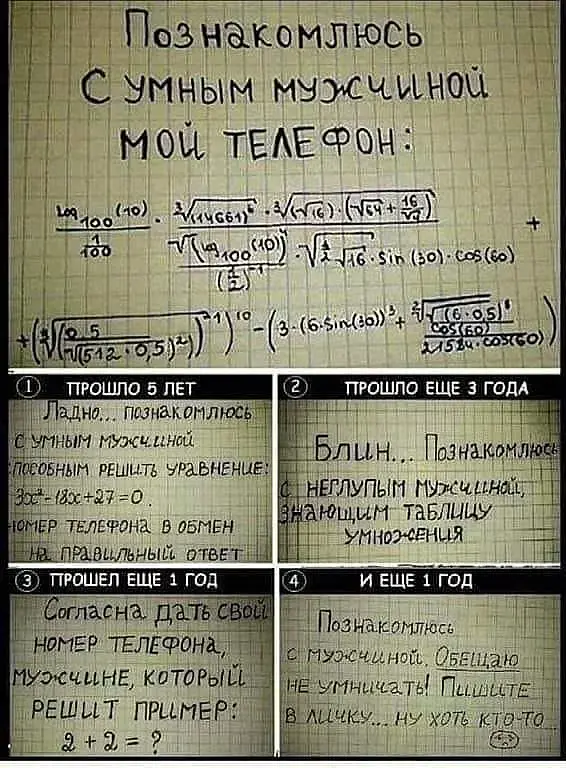 Познакомлюсь
с умным мужчиной
мой телефон:
log₁₀₀(10) / (1/100) · ∛(14661)⁶ · ∛(√16) · (√64 + 16/√4)
√(log₁₀₀(10)) / (1/2)⁻¹ · √16 · sin(30) · cos(60) +
① ПРОШЛО 5 ЛЕТ
Ладно... познакомлюсь
с умным мужчиной
способным решить уравнение:
3x²-18x+27=0.
номер телефона в обмен
на правильный ответ
② ПРОШЛО ЕЩЕ 3 ГОДА
Блин... Познакомлюсь
с неглупым мужчиной,
знающим таблицу
умножения
③ ПРОШЕЛ ЕЩЕ 1 ГОД
Согласна дать свой
номер телефона,
мужчине, который
решит пример:
2+2=?
④ И ЕЩЕ 1 ГОД
Познакомлюсь
с мужчиной. Обещаю
не умничать! Пишите
в личку... ну хоть кто-то...